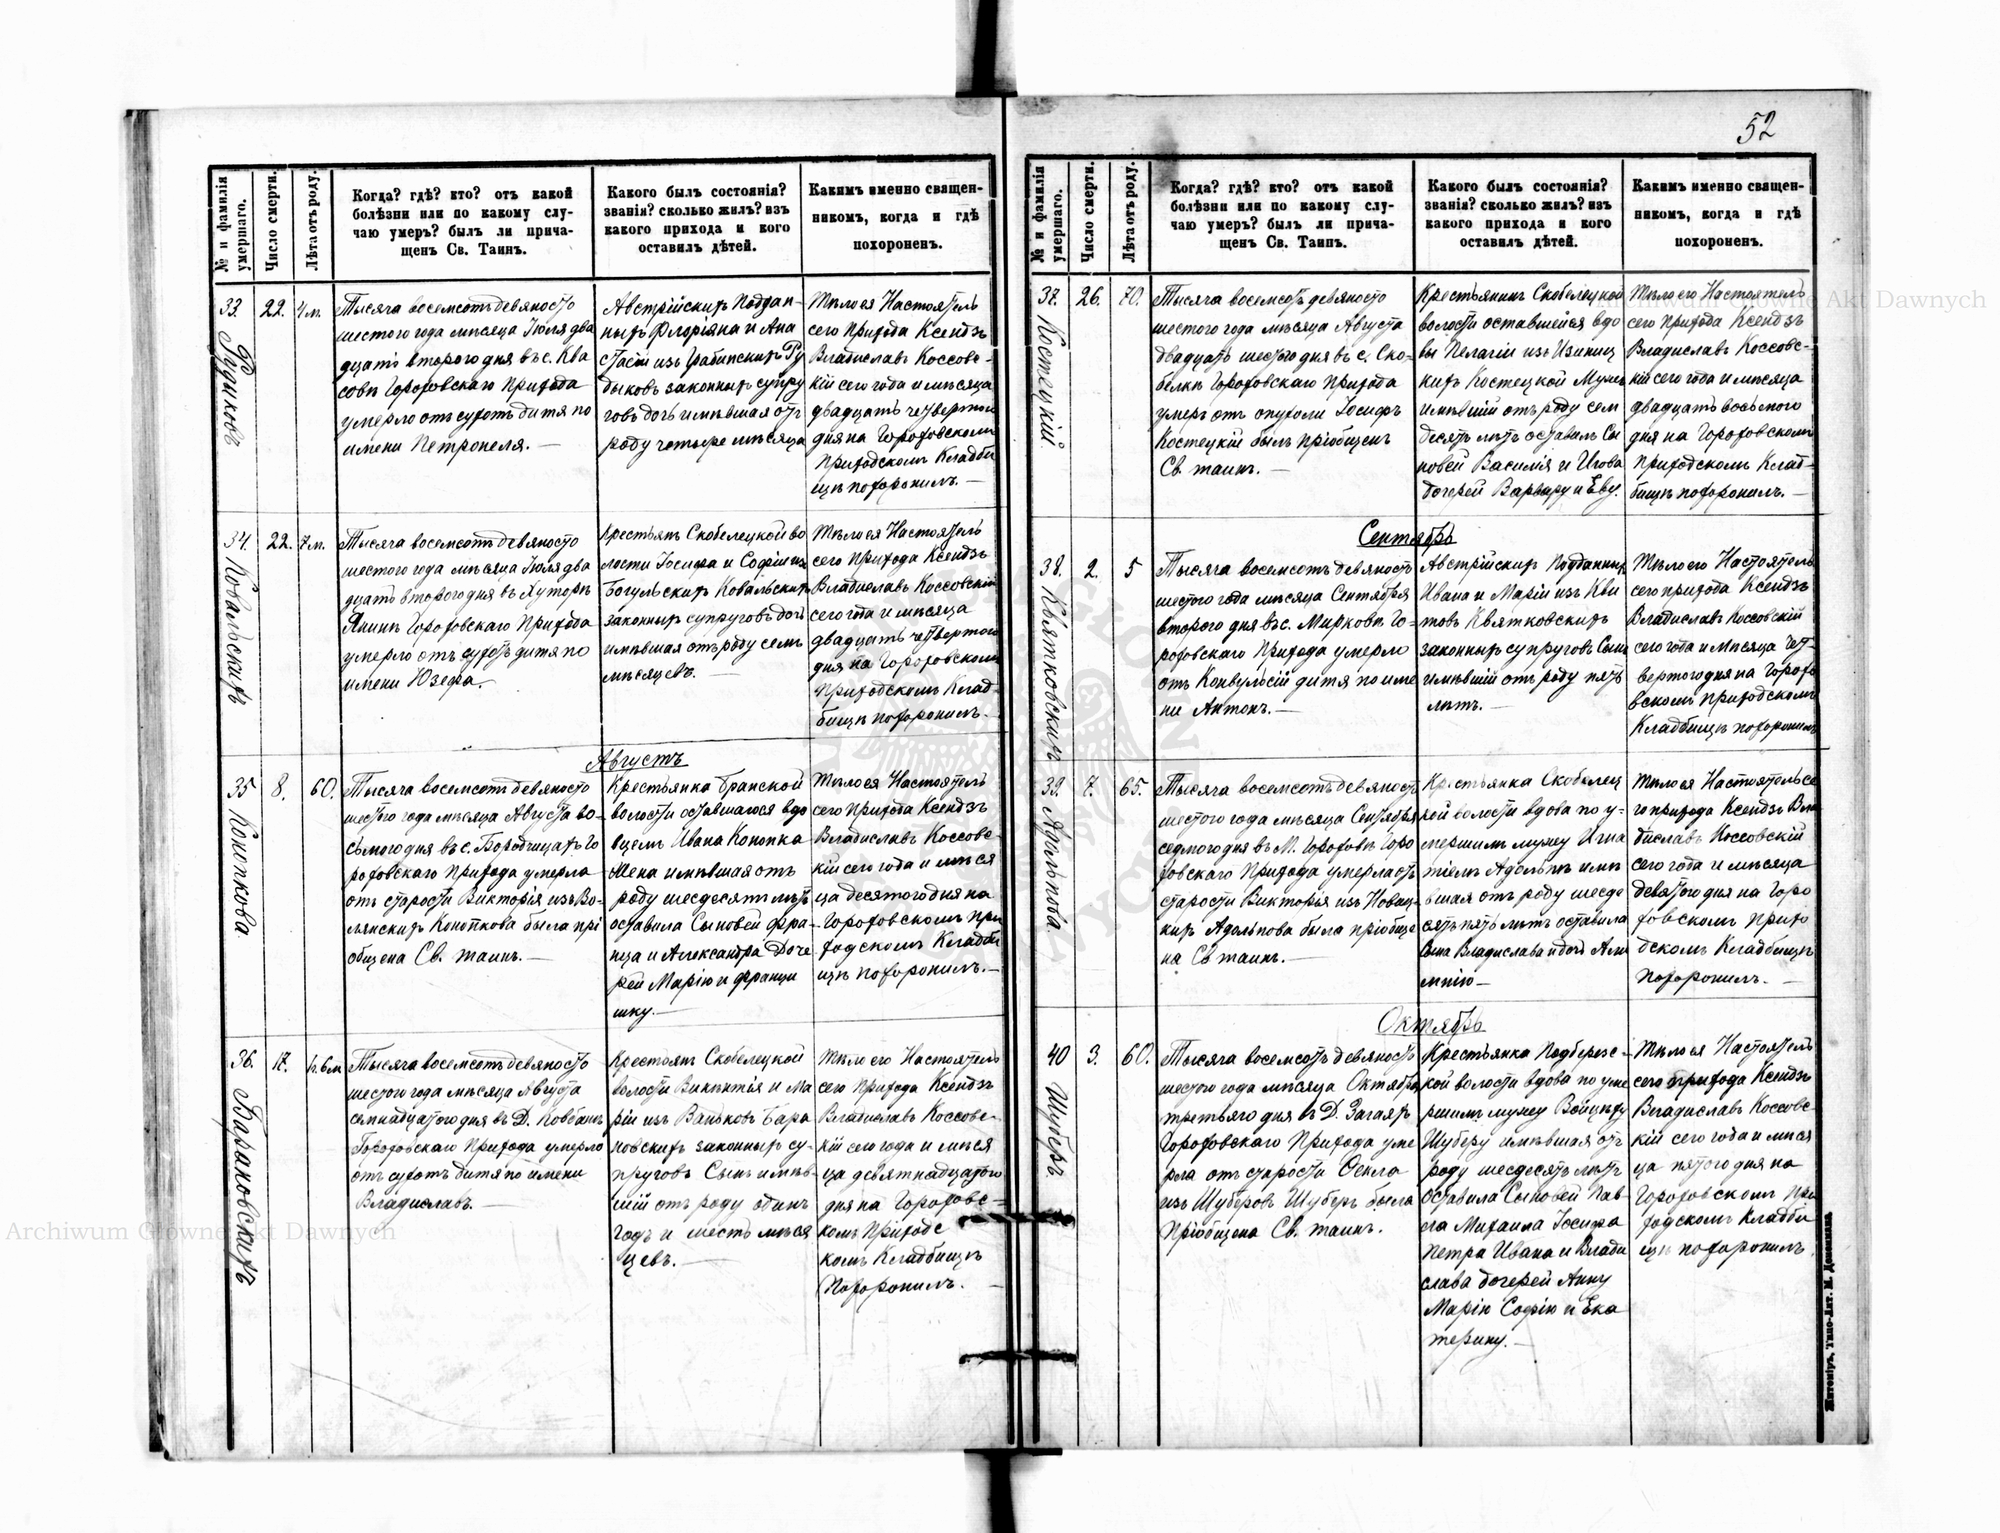 52
№ и фамилія умершаго.
Число смерти.
Лѣта отъ роду.
Когда? гдѣ? кто? отъ какой
болѣзни или по какому слу-
чаю умеръ? былъ ли прича-
щенъ Св. Таинъ.
Какого былъ состоянія?
званія? сколько жилъ? изъ
какого прихода и кого
оставилъ дѣтей.
Какимъ именно священ-
никомъ, когда и гдѣ
похороненъ.
33.
22.
4 м.
Тысяча восемсотъ девяносто
шестого года мѣсяца Іюля два
дцать второго дня въ с. Ква
совѣ Гороховскаго Прихода
умерло отъ сухотъ дитя по
имени Петронеля. —
Австрійскихъ Поддан-
ныхъ Флоріяна и Ана
стасіи изъ Грабинскихъ Ру
дыковъ законныхъ супру
говъ дочь имѣвшая отъ
роду четыре мѣсяца
Тѣло ея Настоятель
сего Прихода Ксендзъ
Владиславъ Коссовс-
кій сего года и мѣсяца
двадцать четвертого
дня на Гороховскомъ
Приходскомъ Кладби
щѣ похоронилъ. —
34.
Ковальскихъ
22.
7 м.
Тысяча восемсотъ девяносто
шестого года мѣсяца Іюля два
дцать второго дня въ Хуторѣ
Янинѣ Гороховскаго Прихода
умерло отъ сухотъ дитя по
имени Юзефа. —
Крестьянъ Скобелецкой во
лости Іосифа и Софіи изъ
Богульскихъ Ковальскихъ
законныхъ супруговъ дочь
имѣвшая отъ роду семь
мѣсяцевъ. —
Тѣло ея Настоятель
сего Прихода Ксендзъ
Владиславъ Коссовскій
сего года и мѣсяца
двадцать четвертого
дня на Гороховскомъ
Приходскомъ Клад-
бищѣ похоронилъ. —
Августъ
35
Конопкова.
8.
60.
Тысяча восемсотъ девяносто
шестого года мѣсяца Августа во-
сьмого дня въ с. Бородчицахъ Го
роховскаго Прихода умерла
отъ старости Викторія изъ Во-
лянскихъ Конопкова была прі
общена Св. таинъ. —
Крестьянка Бранской
волости оставшагося вдо
вцемъ Ивана Конопка
жена имѣвшая отъ
роду шесдесятъ лѣтъ
оставила Сыновей Фра-
нца и Александра Доче
рей Марію и Франци
шку. —
Тѣло ея Настоятель
сего Прихода Ксендзъ
Владиславъ Коссовс-
кій сего года и мѣся
ца десятого дня на
Гороховскомъ При
ходскомъ Кладби
щѣ похоронилъ. —
36.
Барановскихъ
17.
1 г. 6 м
Тысяча восемсотъ девяносто
шестого года мѣсяца Августа
семнадцатого дня въ Д. Ковбанѣ
Гороховскаго Прихода умерло
отъ сухотъ дитя по имени
Владиславъ. —
Крестьянъ Скобелецкой
волости Викентія и Ма
ріи изъ Ваньковъ Бара
новскихъ законныхъ су-
пруговъ Сынъ имѣв-
шій отъ роду одинъ
годъ и шесть мѣся
цевъ. —
Тѣло его Настоятель
сего Прихода Ксендзъ
Владиславъ Коссовс-
кій сего года и мѣся
ца девятнадцатого
дня на Гороховс-
комъ Приходс
комъ Кладбищѣ
Похоронилъ. —
№ и фамилія умершаго.
Число смерти.
Лѣта отъ роду.
Когда? гдѣ? кто? отъ какой
болѣзни или по какому слу-
чаю умеръ? былъ ли прича-
щенъ Св. Таинъ.
Какого былъ состоянія?
званія? сколько жилъ? изъ
какого прихода и кого
оставилъ дѣтей.
Какимъ именно священ-
никомъ, когда и гдѣ
похороненъ.
37.
Костецкій.
26.
70.
Тысяча восемсотъ девяносто
шестого года мѣсяца Августа
двадцать шестого дня въ с. Ско-
белкѣ Гороховскаго Прихода
умеръ отъ опухоли Іосифъ
Костецкій былъ пріобщенъ
Св. таинъ. —
Крестьянинъ Скобелецкой
волости оставшейся вдо
вы Пелагіи изъ
Костецкой Мужъ
имѣвшій отъ роду сем
десятъ лѣтъ оставилъ Сы
новей Василія и
дочерей Варвару и Еву.
Тѣло его Настоятель
сего Прихода Ксендзъ
Владиславъ Коссовс-
кій сего года и мѣсяца
двадцать восьмого
дня на Гороховскомъ
Приходскомъ Клад-
бищѣ похоронилъ. —
Сентябрь
38.
Квятковскихъ
2.
5
Тысяча восемсотъ девяносто
шестого года мѣсяца Сентября
второго дня въ с. Марковѣ Го-
роховскаго Прихода умерло
отъ Конвульсій дитя по име
ни Антонъ. —
Австрійскихъ Подданныхъ
Ивана и Маріи изъ Кви
товъ Квятковскихъ
законныхъ супруговъ Сынъ
имѣвшій отъ роду пять
лѣтъ. —
Тѣло его Настоятель
сего прихода Ксендзъ
Владиславъ Коссовскій
сего года и мѣсяца чет-
вертого дня на Горохо
вскомъ приходскомъ
Кладбищѣ похоронилъ
39.
Адольпова
7.
65.
Тысяча восемсотъ девяносто
шестого года мѣсяца Сентября
седмого дня въ М. Гороховѣ Горо
ховскаго Прихода умерла отъ
старости Викторья изъ Новиц-
кихъ Адольпова была пріобще
на Св таинъ. —
Крестьянка Скобелец
кой волости вдова по у-
мершимъ мужу Игна
тіемъ Адольпѣ имѣ
вшая отъ роду шесде
сятъ пять лѣтъ оставила
сына Владислава и дочь
—
Тѣло ея Настоятель се
го прихода Ксендзъ Вла
диславъ Коссовскій
сего года и мѣсяца
девятого дня на Горо
ховскомъ Прихо
дскомъ Кладбищѣ
похоронилъ. —
Октябрь
40
Шуберъ.
3.
60.
Тысяча восемсотъ девяносто
шестого года мѣсяца Октября
третьяго дня въ Д. Загаяхъ
Гороховскаго Прихода уме
рла отъ старости Фекла
изъ Шуберовъ Шуберъ была
Пріобщена Св. таинъ.
Крестьянка Подберезс-
кой волости вдова по уме
ршимъ мужу Войцеху
Шуберу имѣвшая отъ
роду шесдесятъ лѣтъ
оставила Сыновей Пав-
ла Михаила Іосифа
Петра Ивана и Влади
слава дочерей Анну
Марію Софію и Ека
терину. —
Тѣло ея Настоятель
сего прихода Ксендзъ
Владиславъ Коссовс-
кій сего года и мѣся
ца пятого дня на
Гороховскомъ При
ходскомъ Кладби
щѣ похоронилъ.
Житоміръ, Типо-Лит. М. Дененмана.
Archiwum Główne Akt Dawnych
Archiwum Główne Akt Dawnych